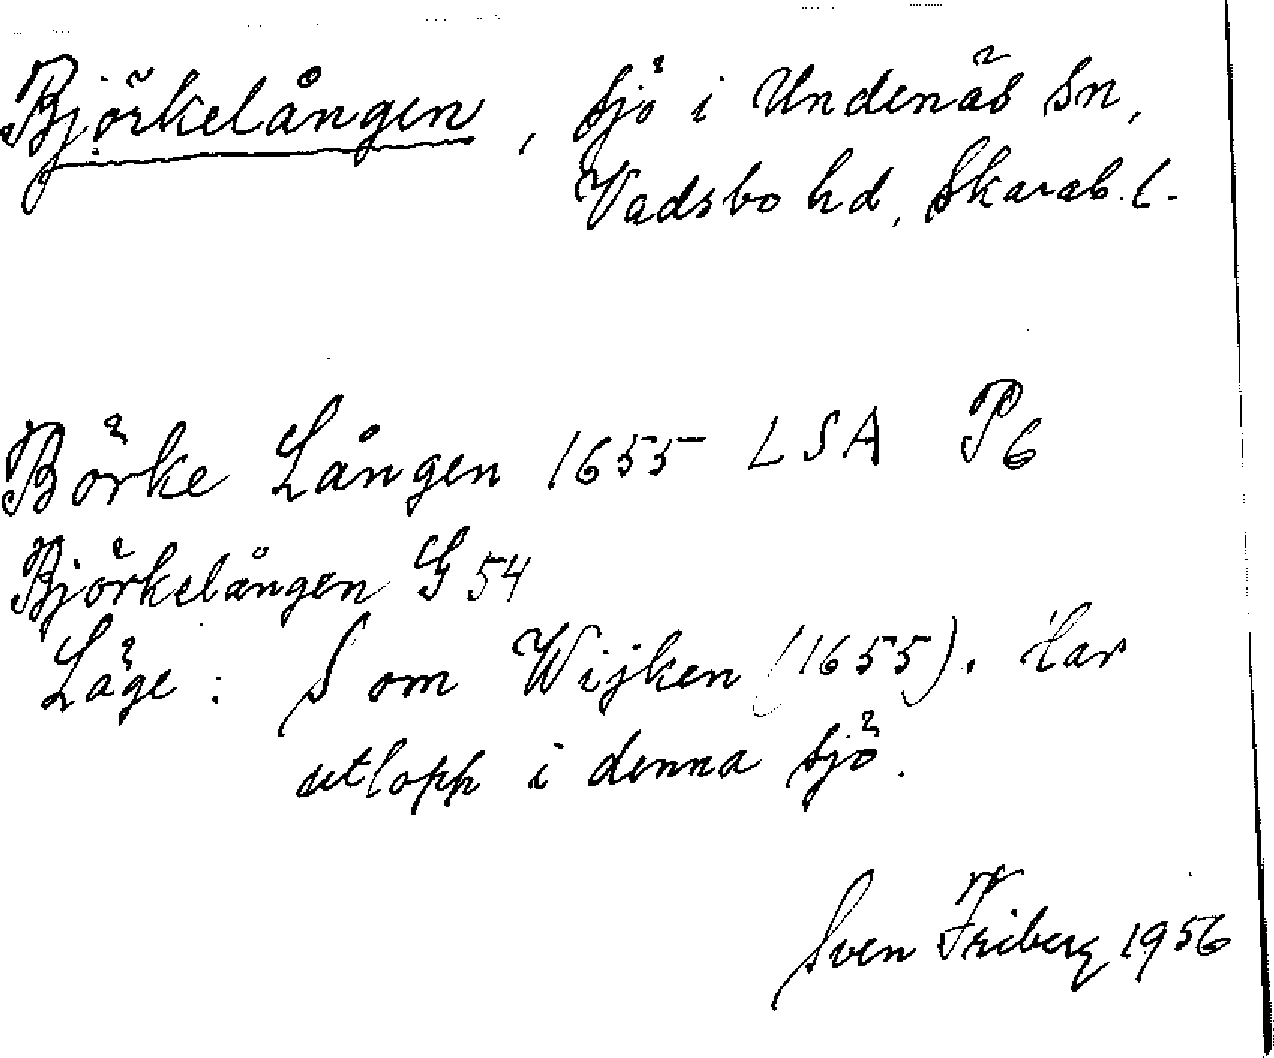 Björkelången, sjö i Undenäs sn,
Vadsbo hd, Skarab. l.
Börke Lången 1655 LSA P6
Björkelången G 54
Läge: S om Wijken (1655). Har
utlopp i denna sjö.
Sven Friberg 1956